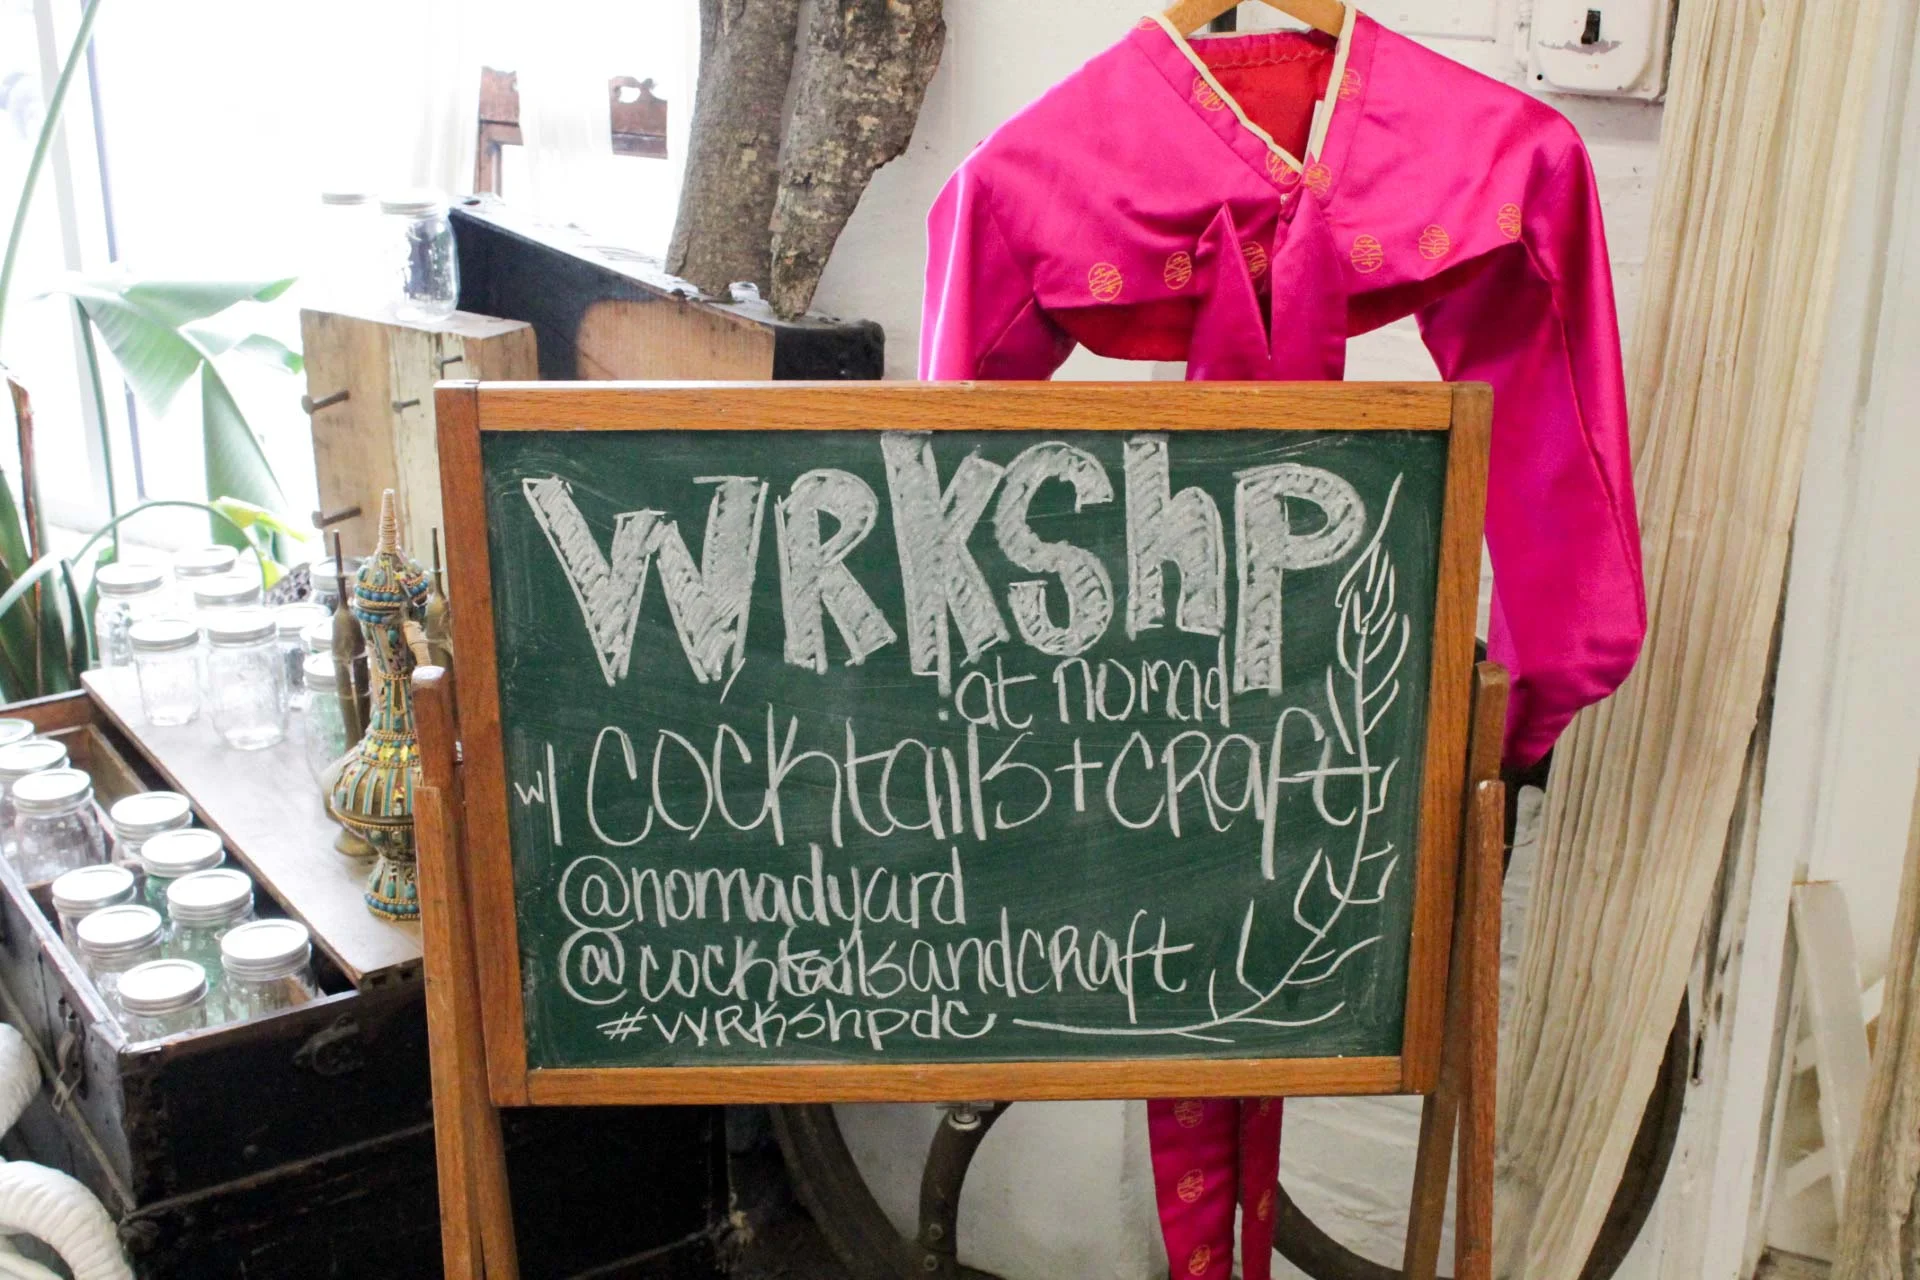 WRKShP
at nomad
w/ cocktails + craft
@nomadyard
@cocktailsandcraft
#WRKShpdc